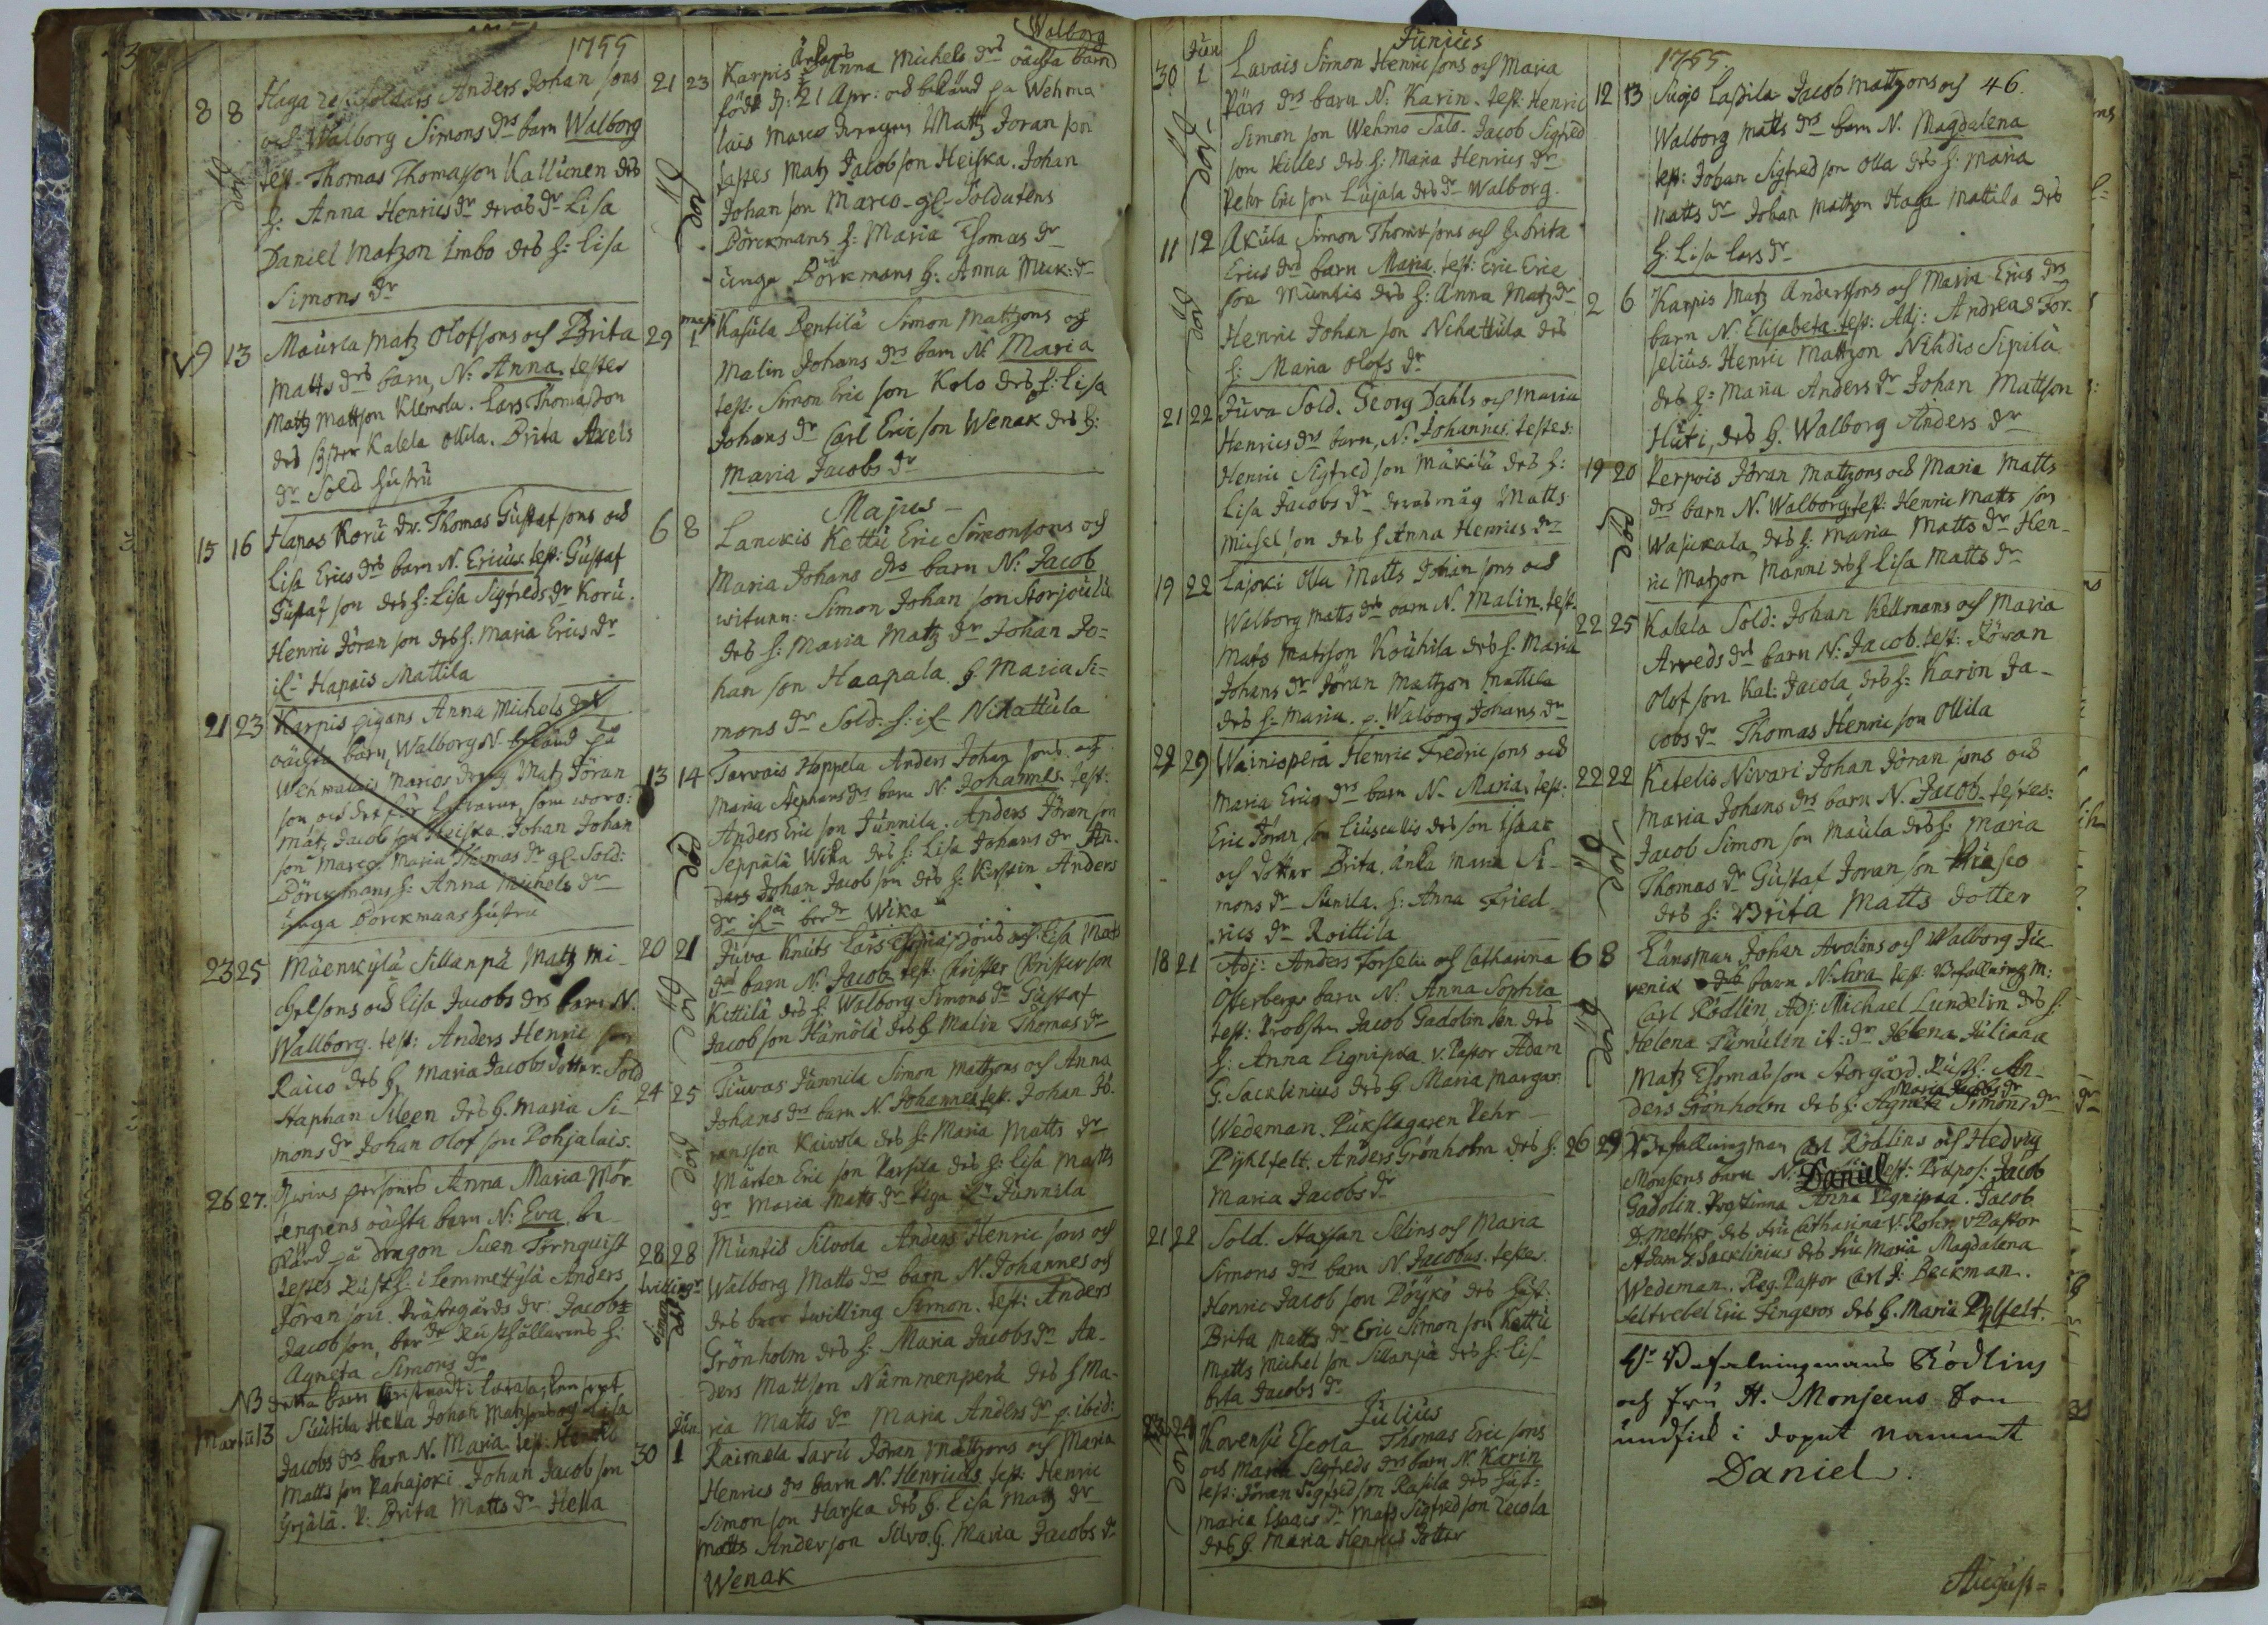 1755
8 8 Haga res: Soldats Anders Johan sons
och Walborg Simons drs barn Walborg
test. Thomas Thomasson Kallionen des
h: Anna Henrics dr deras dr Lisa
Daniel Matzon Imbo des h: Lisa
Simons dr
9 13 Maurla Matz Olofsons och Brita
Matts drs barn, N: Anna. testes
Matz Mattson Klemola. Lars Thomasson
des syster Kalela Ollila. Brita Axels
dr Sold hustru
15 16 Hapas Koru dr. Thomas Gustafsons och
Lisa Erics drs barn N. Ericus. test: Gustaf
Gustaf son des h: Lisa Sigfreds dr Koru.
Henric Jöran son des h: Maria Erics dr
Hapais Mattila
21 23 Karpis pigans Anna Michels drs
oächta barn, Walborg N.
Wehmalais Marcos dreng Matz Jöran
son
Matz Jacob son Heiska Johan Johan
son Marco. Maria Thomas dr gl. Sold:
Dörckmans h: Anna Michels dr
unga Dorckmans hustru
23 25 Mäenkylä Sillanpä Matz Mi-
chelsons och Lisa Jacobs drs barn N.
Wallborg. test: Anders Henric son
Raico des h. Maria Jacobs dotter. Sold
Staphan Sileen des h. Maria Si-
mons dr Johan Olof son Pohjalais.
26 27. Anna Maria
tengrens oächta barn N: Eva. be-
på dragon Sven Törnquist
testes Rusth: i Lemmettylä Anders
Jöran son. Prästegårds dr: Jacob
Jacobson, Rusthållarens h.
Agneta Simons dr
NB detta barn
Martii 13 Suutila Hella Johan Matzons och Lisa
Jacobs drs barn N. Maria. test:
Matts son Rahajoki Johan Jacobson
Yrjälä. P: Brita Matts dr Hella
Walborg
21 23 Karpis Anna Michels drs oächta barn
född d: 21 Apr:
lais Marco drengen Matz Joran son
testes Matz Jacobson Heiska. Johan
Johan son Marco. gl. Soldatens
Dörckmans h: Maria Thomas dr
unga Dörkmans h: Anna Mick: dr
29 maji 1 Kasula Pentilä Simon Mattzons och
Malin Johans drs barn N: Maria
test: Simon Eric son Kolo des h: Lisa
Johans dr Carl Ericson Wenak des h:
Maria Jacobs dr
Majus
6 8 Lanckis Kettu Eric Simonsons och
Maria Johans drs barn N: Jacob
witunn: Simon Johan son Storjoula
des h: Maria Matz dr Johan Jo=
han son Haapala. h. Maria Si=
mons dr Sold: h: Nihattula
13 14 Tarvais Hoppela Anders Johan sons och
Maria Stephans drs barn N: Johannes. test:
Anders Eric son Junnila. Anders Jöran son
Seppälä Wika des h: Lisa Johans dr An-
ders Johan Jacob son des h. Kirstin Anders
dr Wika
20 21 Juva Knuts Lars sons och Lisa Mats
drs barn N: Jacob. test: Christer Christerson
Kittilä des h: Walborg Simons dr Gustaf
Jacobson Hämölä des h Malin Thomas dr
24 25 Tiuvas Junnila Simon Mattzons och Anna
Johans drs barn N. Johannes. test. Johan Jö-
ransson Kaiwola des h: Maria Matts dr
Mårten Eric son Parsila des h: Lisa Matts
dr Maria Matts dr Piga Junnila
28 28 Muntis Silvola Anders Henric sons och
twillingr Walborg Matts drs barn N. Johannes och
des bror twilling Simon. test: Anders
Grönholm des h: Maria Jacobs dr An-
ders Mattson Nummenperä des h Ma-
ria Matts dr Maria Anders dr p. ibid:
Jun.
30 1 Raimela Savu Jöran Mattzons och Maria
Henrics drs barn N. Henricus. test: Henric
Simon son Harsca des h. Lisa Matz dr
Matts Anderson Silvo. h. Maria Jacobs dr
Wenak
Junius
Jun
30 1 Lavais Simon Henricsons och Maria
Pärs drs barn N: Karin. test: Henric
Simon son Wehmo Salo. Jacob Sigfred
son Killes des h: Maria Henrics dr
Pehr Ericson Lusala des dr Walborg.
11 12 Akula Simon Thomæsons och h. Brita
Erics drs barn Maria. test: Eric Eric
son Muntis des h: Anna Matz dr
Henric Johan son Nihattula des
h: Maria Olofs dr
21 22 Juva Sold. Georg Dahls och Maria
Henrics drs barn, N: Johannes. testes:
Henric Sigfredson Mäkilä des h:
Lisa Jacobs dr deras måg Matts
Michel son des h Anna Henrics dr
19 22 Lajoki Olla Matts Johan sons och
Walborg Matts drs barn N. Malin. test.
Mats Matsson Kouhila des h: Maria
Johans dr Jöran Mattzon Mattila
des h: Maria. p. Walborg Johans dr
27 29 Wainiopera Henric Fredricsons och
Maria Erics drs barn N. Maria. test:
Eric Jöran son Liuscallis des son Isaac
och dotter Brita. änka Maria Si-
mons dr h: Anna Fried-
rics dr Roittila
18 21 Adj: Anders Forselii och Catharina
Osterbergs barn N: Anna Sophia
test: Probsten Jacob Gadolin Sen. des
h: Anna Lignipæa v. Pastor Adam
G. Sacklinius des h Maria Margar:
Wedeman. Pukslagaren Pehr
Pyhlfelt. Anders Grönholm des h:
Maria Jacobs dr
21 22 Sold. Staffan Selins och Maria
Simons drs barn N. Jacobus. testes.
Henric Jacob son Pöykö des hust:
Brita Matts dr Eric Simon son Kettu
Matts Michel son Sillanpä des h: Lis-
beta Jacobs dr
Julius
23 24 Kovensu Escola Thomas Eric sons
och Maria Sigfreds drs barn N. Karin
test: Jöran Sigfred son Rasila des hust=
Maria Isaacs dr Mats Sigfred son Escola
des h. Maria Henrics Dotter
1755.
12 13 Sugo Lassila Jacob Mattzons och 46.
Walborg Matts drs barn N. Magdalena
test: Johan Sigfred son Olla des h: Maria
Matts dr Johan Mattzon Haga Mattila des
h: Lisa Lars dr
2 6 Karpis Matz Anderssons och Maria Erics drs
barn N. Elisabeta. test: Adj: Andreas For-
selius. Henric Mattzon Nihdis Sipilä
des h: Maria Anders dr Johan Mattson
Huti, des h. Walborg Anders dr
19 20 Perpois Jöran Mattzons och Maria Matts
drs barn N. Walborg. test: Henric Matts son
Wasukala, des h: Maria Matts dr Hen-
ric Matzon Manni des h Lisa Matts dr
22 25 Kalela Sold: Johan Kellmans och Maria
Arveds drs barn N: Jacob. test: Jöran
Olof son Kal: Jacola des h: Karin Ja-
cobs dr Thomas Henric son Ollila
22 22 Ketelis Nivari Johan Jöran sons och
Maria Johans drs barn N. Jacob. testes:
Jacob Simon son Maula des h: Maria
Thomas dr Gustaf Joran son
des h: Brita Matts dotter
6 8 Länsman Johan Avelins och Walborg
barn N: test: Befallningm:
Carl Rödlin, Adj: Michael Lundelin des h:
Helena Pumulin Helena Juliana
Matz Thomasson Storgård. Rusth: An-
Maria Jacobs dr
ders Grönholm des h: Agneta Simons dr
26 29 Befallningsman Carl Rödlins och Hedvig
Monsens barn N. Daniel test: Præpos: Jacob
Gadolin. Anna Lignipæa. Jacob
des fru Catharina v. Rohr. v Pastor
Adam G. Sacklinius des fru Maria Magdalena
Wedeman. Reg. Pastor Carl J. Beckman.
feltvebel Eric Fingeros des h. Maria Pylfelt.
Befalningsmans Rödlins
och fru H. Monseens Son
undfick i doput namnet
Daniel.
August=